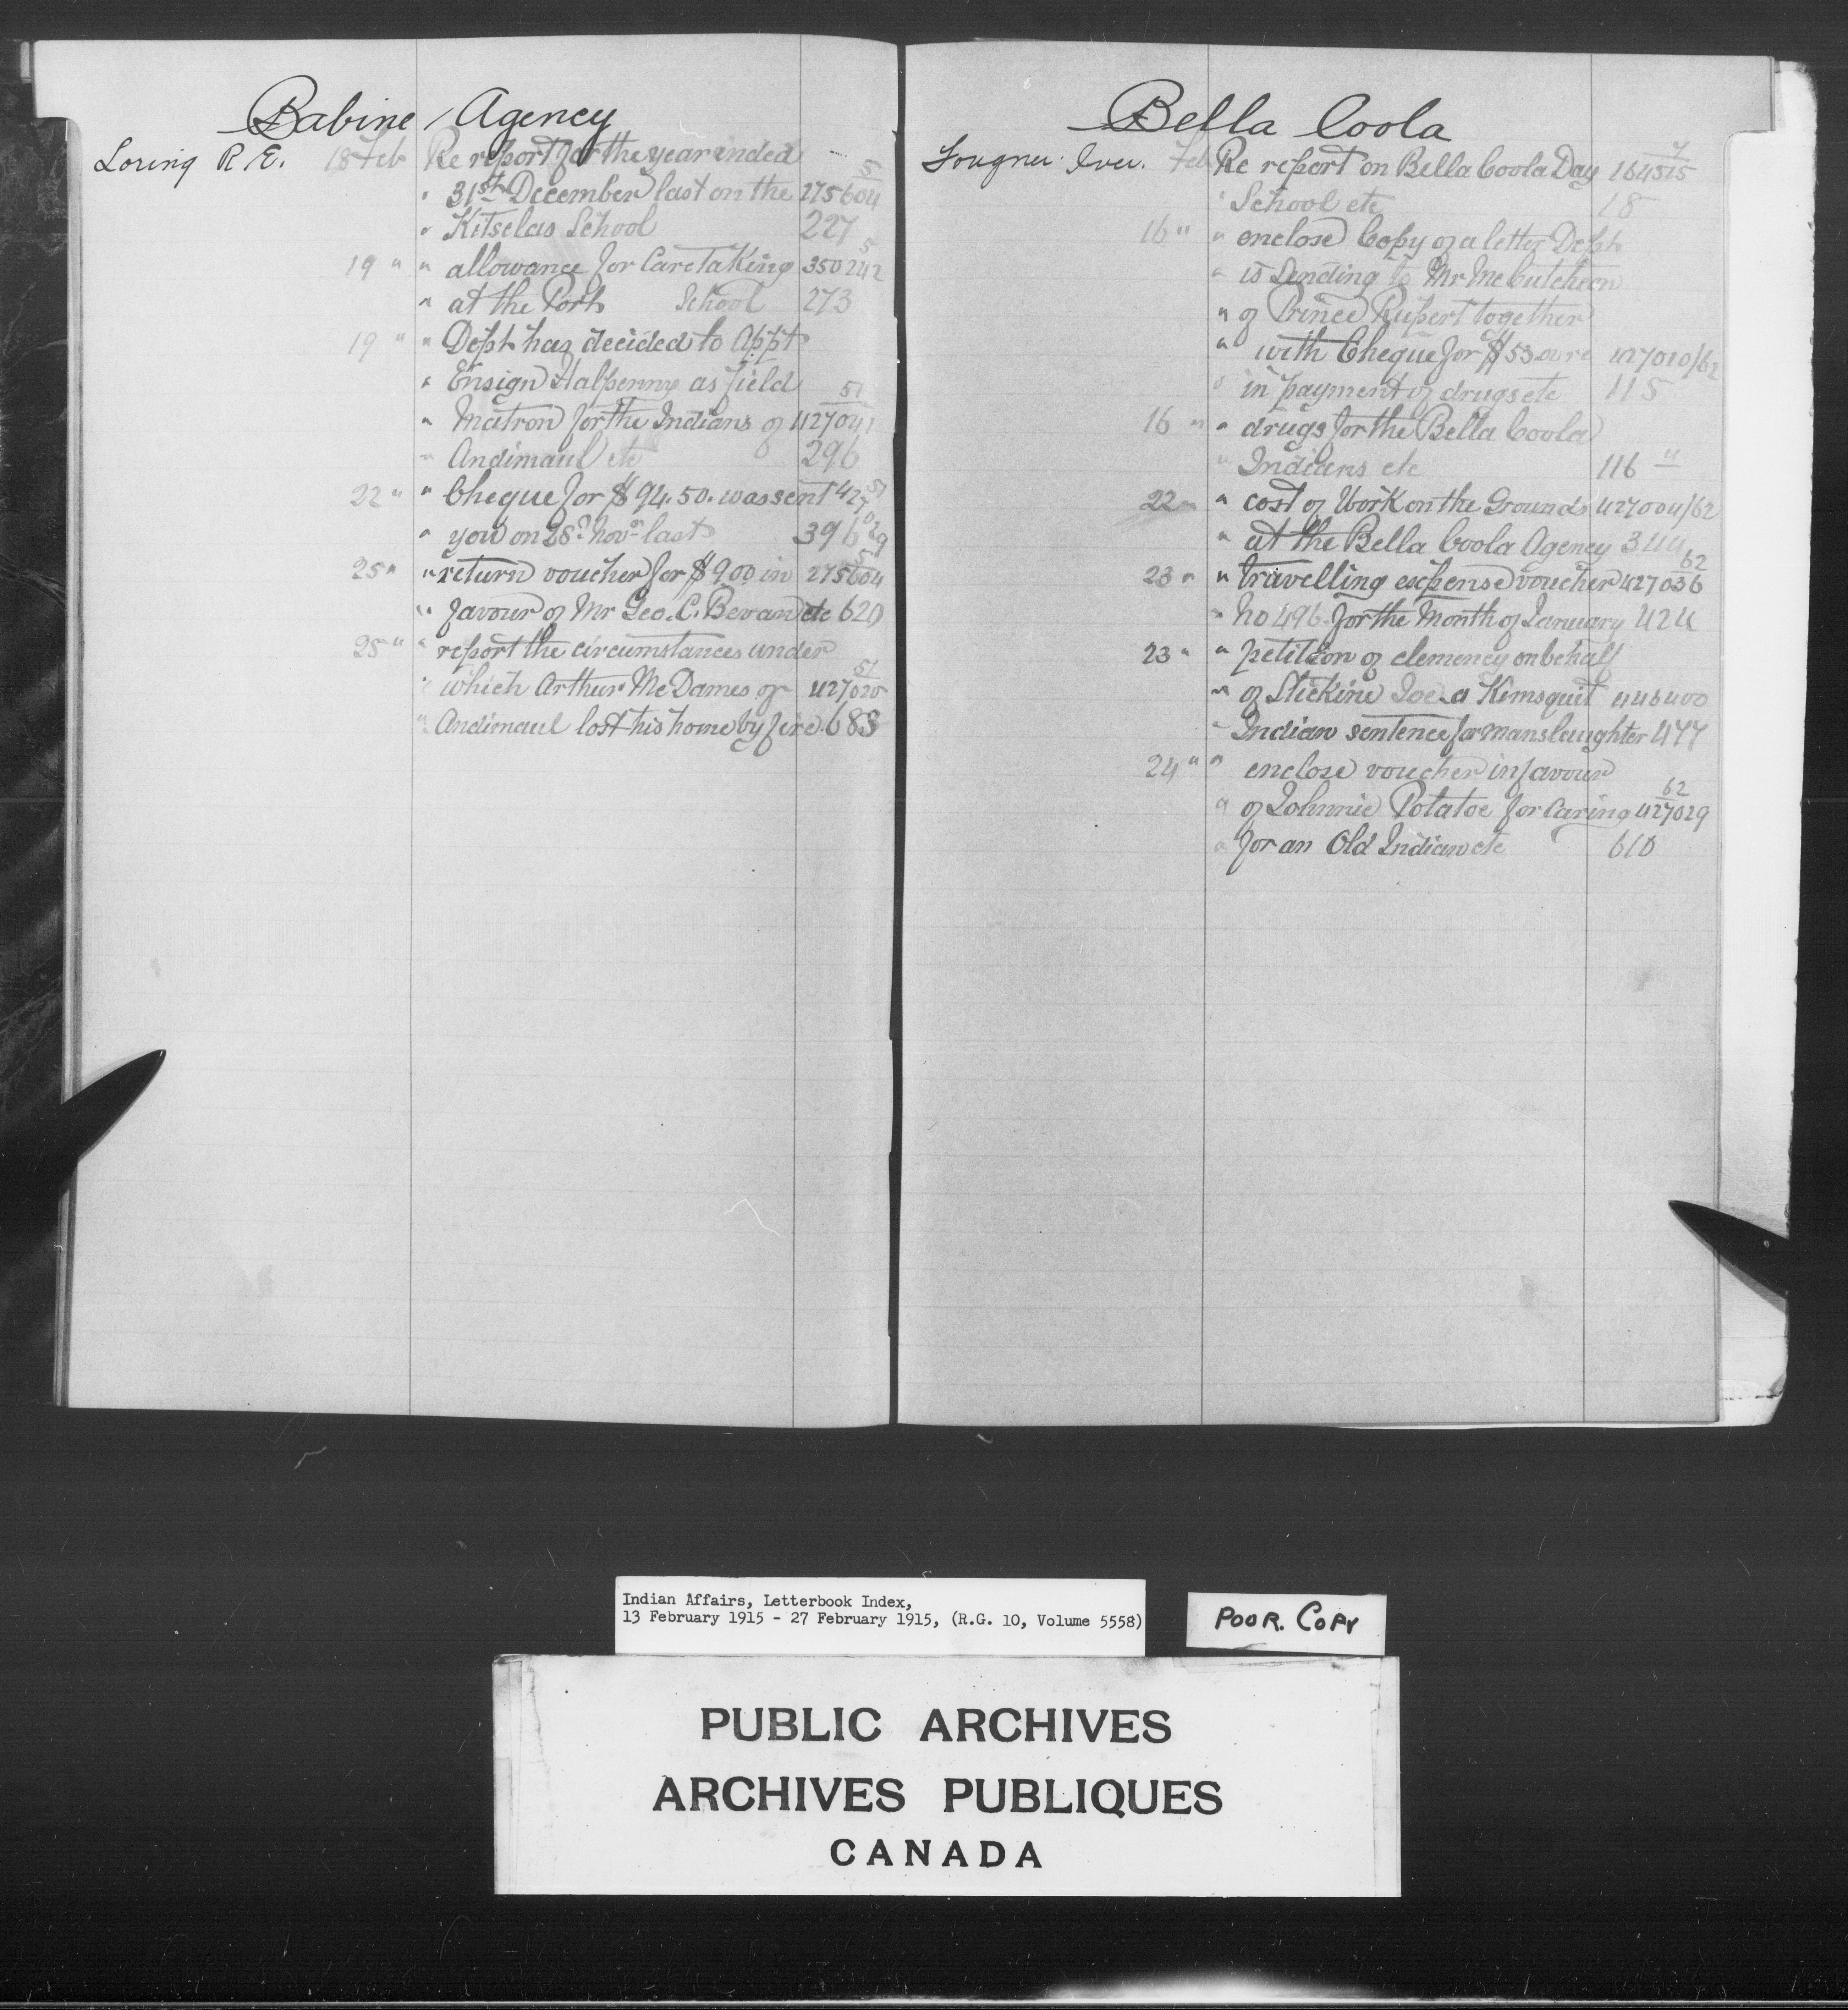 Babine Agency
Loring R. E. 18 Feb Re report for the year ended 5
" 31st December last on the 275604
" Kitselas School 227
19 " " allowance for Caretaking 350242 5
" at the Port School 273
19 " " Dept has decided to Appt
" Ensign Halpenny as field 51
" Matron for the Indians of 427041
" Andimaul etc 296
22 " " Cheque for $94.50. was sent 427029 51
" you on 28th Nov last 396
25 " " return voucher for $9.00 in 275604 5
" favour of Mr Geo. C. Bevan etc 620
25 " " report the circumstances under
" which Arthur McDames of 427020 51
" Andimaul lost his home by fire. 683
Bella Coola
Fougner Iver. Feb Re report on Bella Coola Day 164515 7
" School etc 18
16 " " enclose Copy of a letter Dept
" is Sending to Mr McCutcheon
" of Prince Rupert together
" with Cheque for $53 427010/62
" in payment of drugs etc 115
16 " " drugs for the Bella Coola
" Indians etc 116 "
22 " " cost of Work on the Grounds 427004/62
" at the Bella Coola Agency 344
23 " " travelling expense voucher 427036 62
" No 496. for the Month of January 424
23 " " petition of clemency on behalf
" of Stickine Joe a Kimsquit 446400
" Indian sentence for manslaughter 477
24 " " enclose voucher in favour
" of Johnnie Potatoe for Caring 427029 62
" for an Old Indian etc 610
Indian Affairs, Letterbook Index,
13 February 1915 - 27 February 1915, (R.G. 10, Volume 5558)
POOR. COPY
PUBLIC ARCHIVES
ARCHIVES PUBLIQUES
CANADA